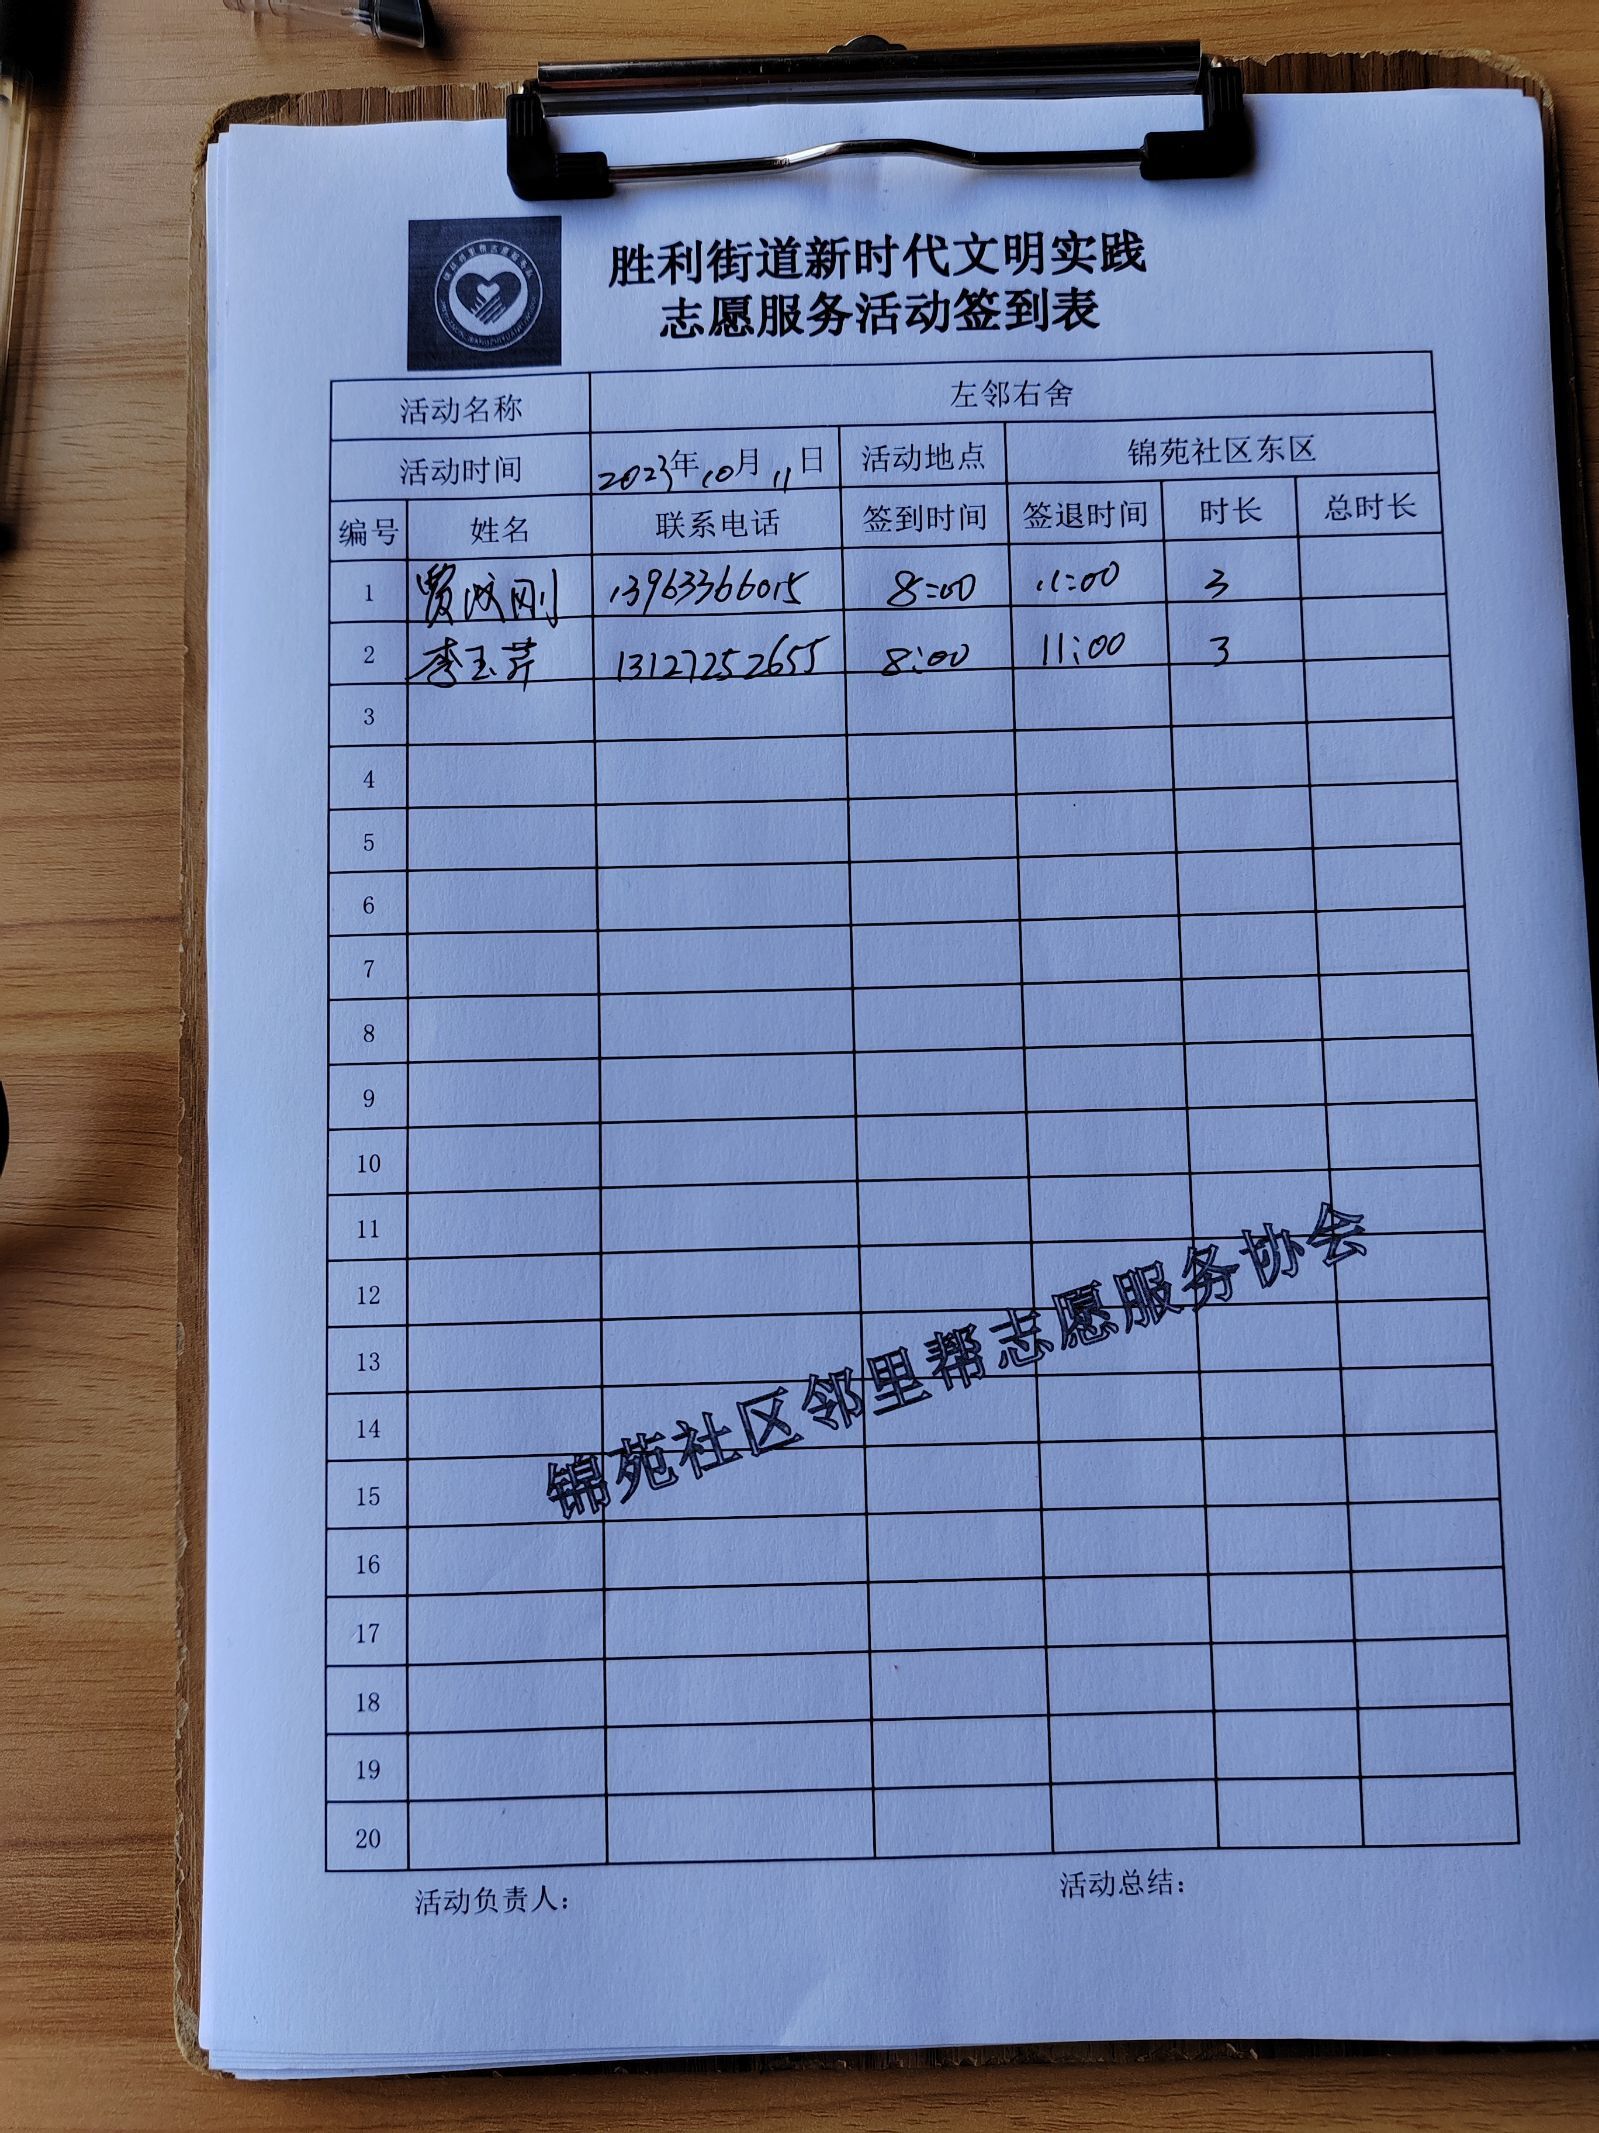 胜利街道新时代文明实践
志愿服务活动签到表
活动名称 左邻右舍
活动时间 2023年10月11日 活动地点 锦苑社区东区
编号 姓名 联系电话 签到时间 签退时间 时长 总时长
1 贾 刚 13963366015 8:00 11:00 3
2 李玉芹 13127252655 8:00 11:00 3
3
4
5
6
7
8
9
10
11
12
13
14
15
16
17
18
19
20
锦苑社区邻里帮志愿服务协会
活动负责人： 活动总结：